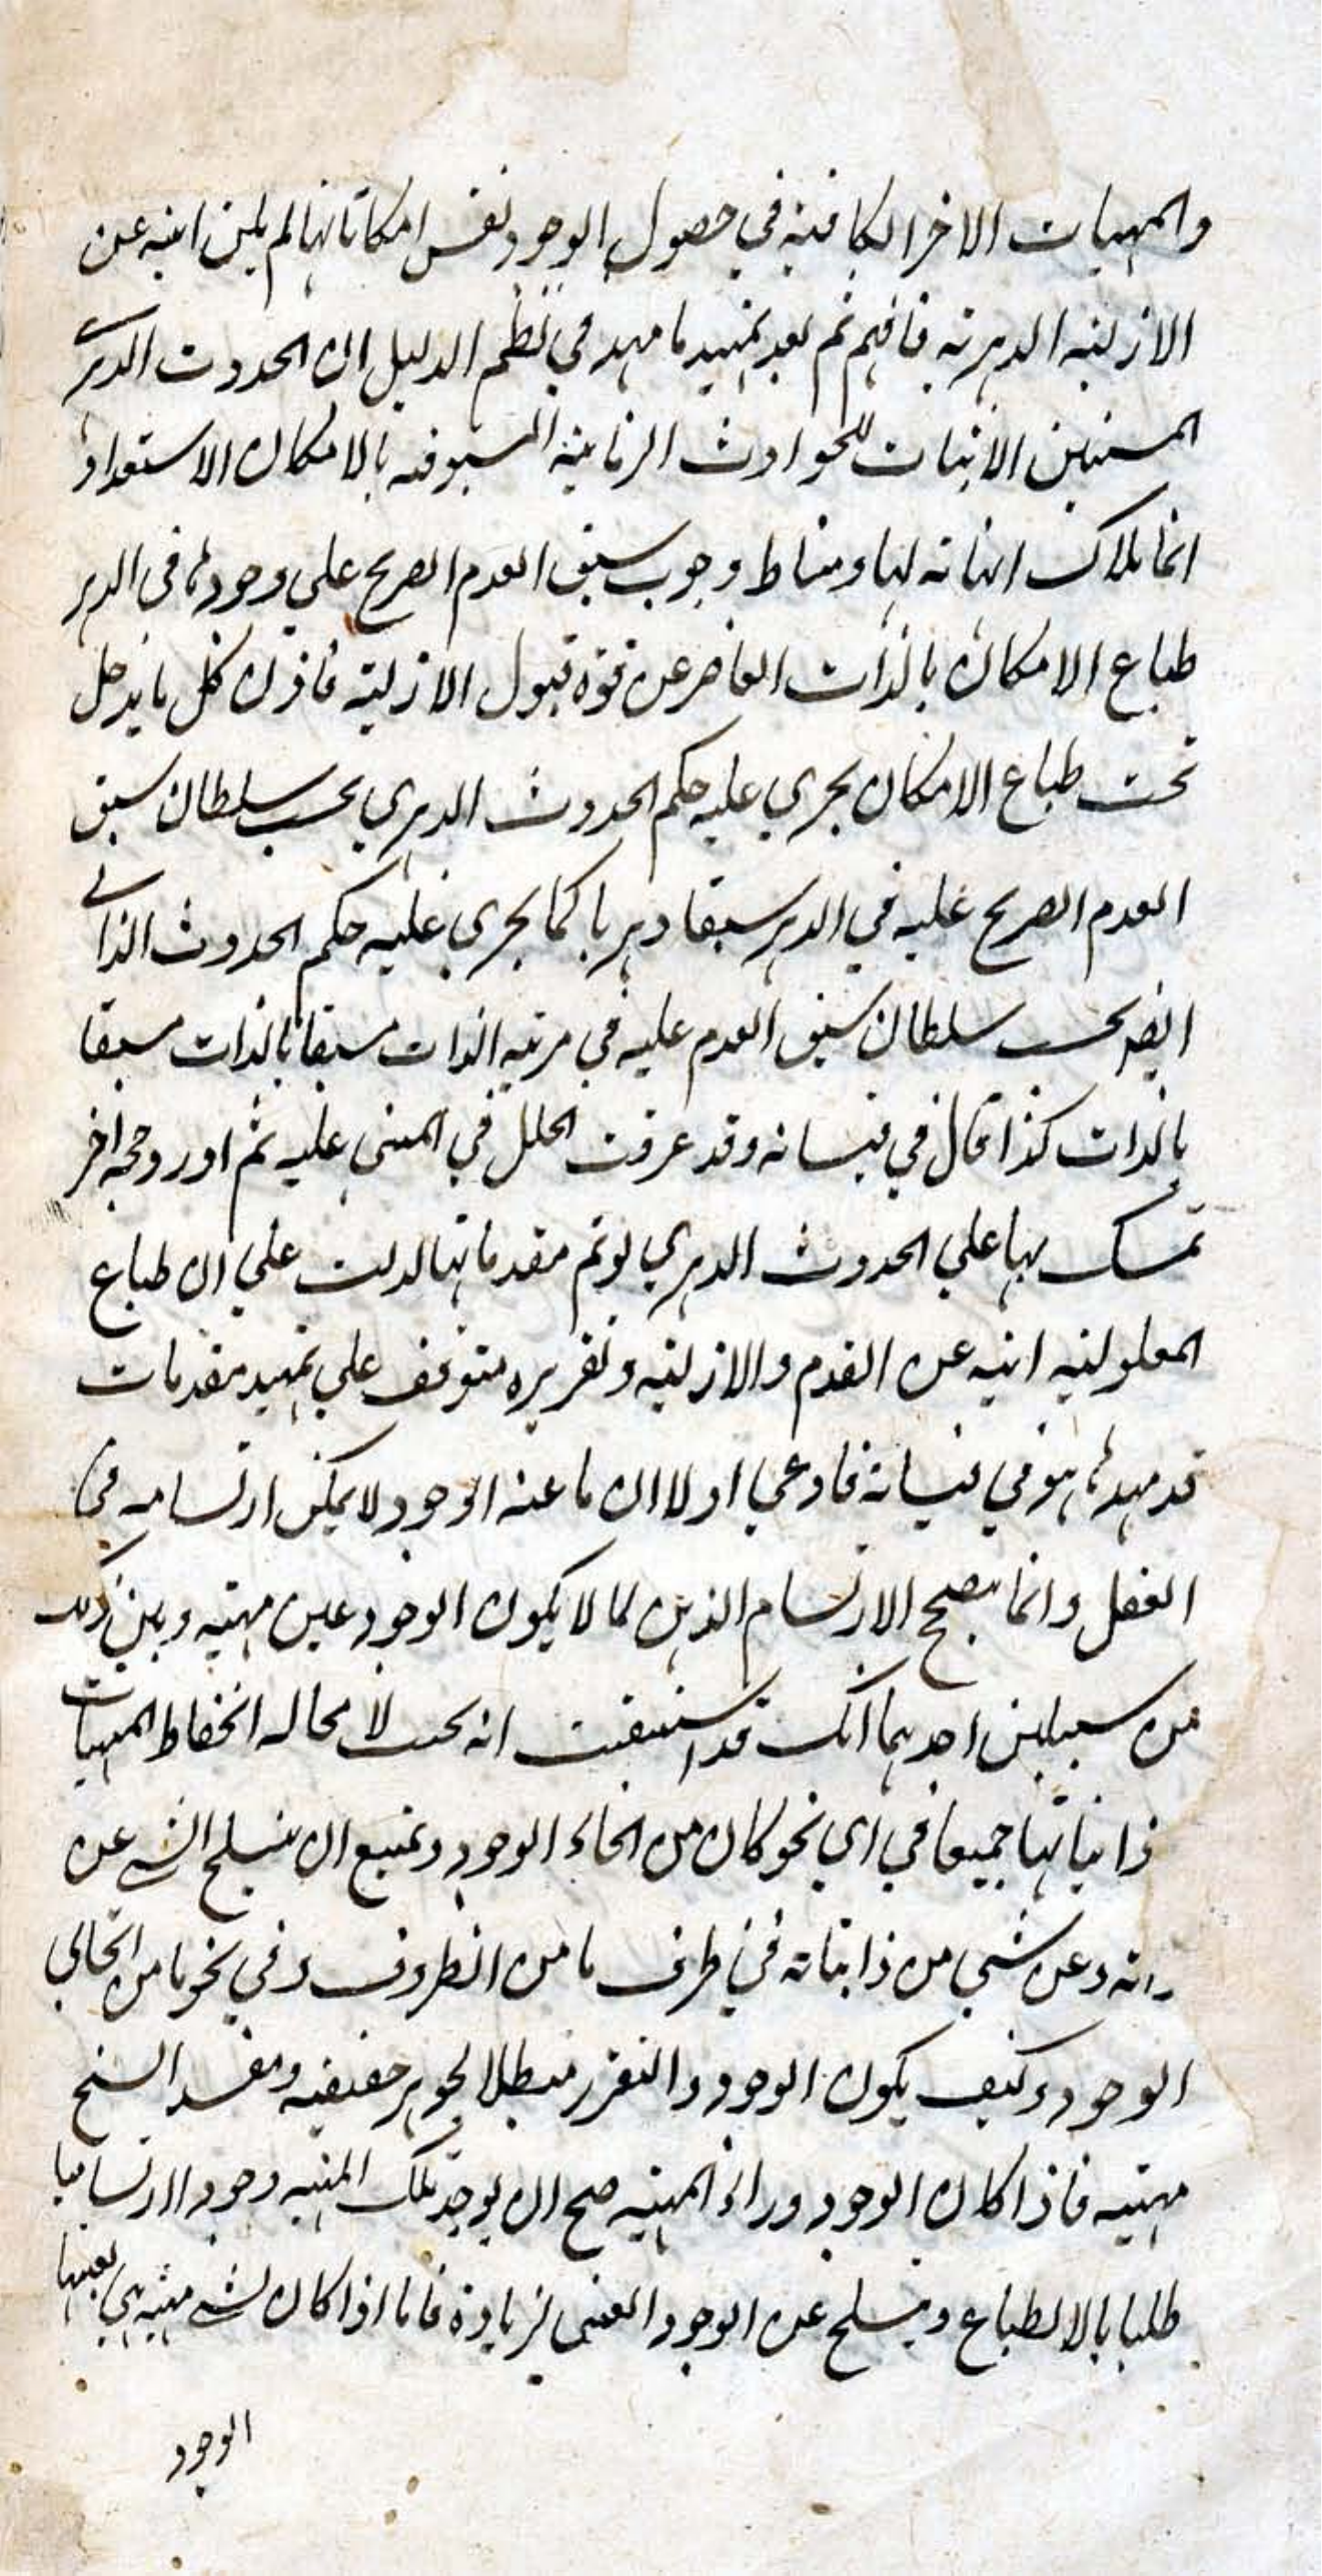 والمهيات الاخر الكافية في حصول الوجود نفس امكاناتها لم يكن ابية عن
الازلية الدهرية فافهم ثم بعد تمهيد ما مهد في نظم الدليل ان الحدوث الدهري
المستبين الاثبات للحوادث الزمانية المسبوقة بالامكان الاستعدادي
انما ملاك اثباته لها ومناط وجوب سبق العدم الصريح على وجودها في الدهر
طباع الامكان بالذات القاصر عن قوة قبول الازلية فاذن كل ما يدخل
تحت طباع الامكان يجري عليه حكم الحدوث الدهري بحسب سلطان سبق
العدم الصريح عليه في الدهر سبقا دهريا كما يجري عليه حكم الحدوث الذاتي
ايضا بحسب سلطان سبق العدم عليه في مرتبة الذات سبقا بالذات سبقا
بالذات كذا قال في قبساته وقد عرفت الخلل في المبنى عليه ثم اورد حجة اخر
تمسك بها علي الحدوث الدهري لو تم مقدماتها لدلت علي ان طباع
المعلولية ابية عن القدم والازلية وتقريره متوقف علي تمهيد مقدمات
قد مهدها هو في قبساته فادعي اولا ان ما عينه الوجود لا يمكن ارتسامه في
العقل وانما يصح الارتسام الذهن لما لا يكون الوجود عين مهيته وبين ذلك
من سبيلين احدهما انك قد استيقنت انه يجب لا محاله انحفاظ المهيات
ذاتياتها جميعا في اي نحو كان من انحاء الوجود ويمتنع ان ينسلخ الشي عن
ذاته وعن شيء من ذاتياته في ظرف ما من الظروف وفي نحو ما من انحاء
الوجود وكيف يكون الوجود والتقرر مبطلا لجوهر حقيقيه ومفسد السنخ
مهيته فاذا كان الوجود وراء المهية صح ان يوجد تلك المهية وجودا ارتساميا
طلبا بالانطباع وينسلخ عن الوجود العيني لزيادة فاما اذا كان لشي مهية هي بعينها
الوجود